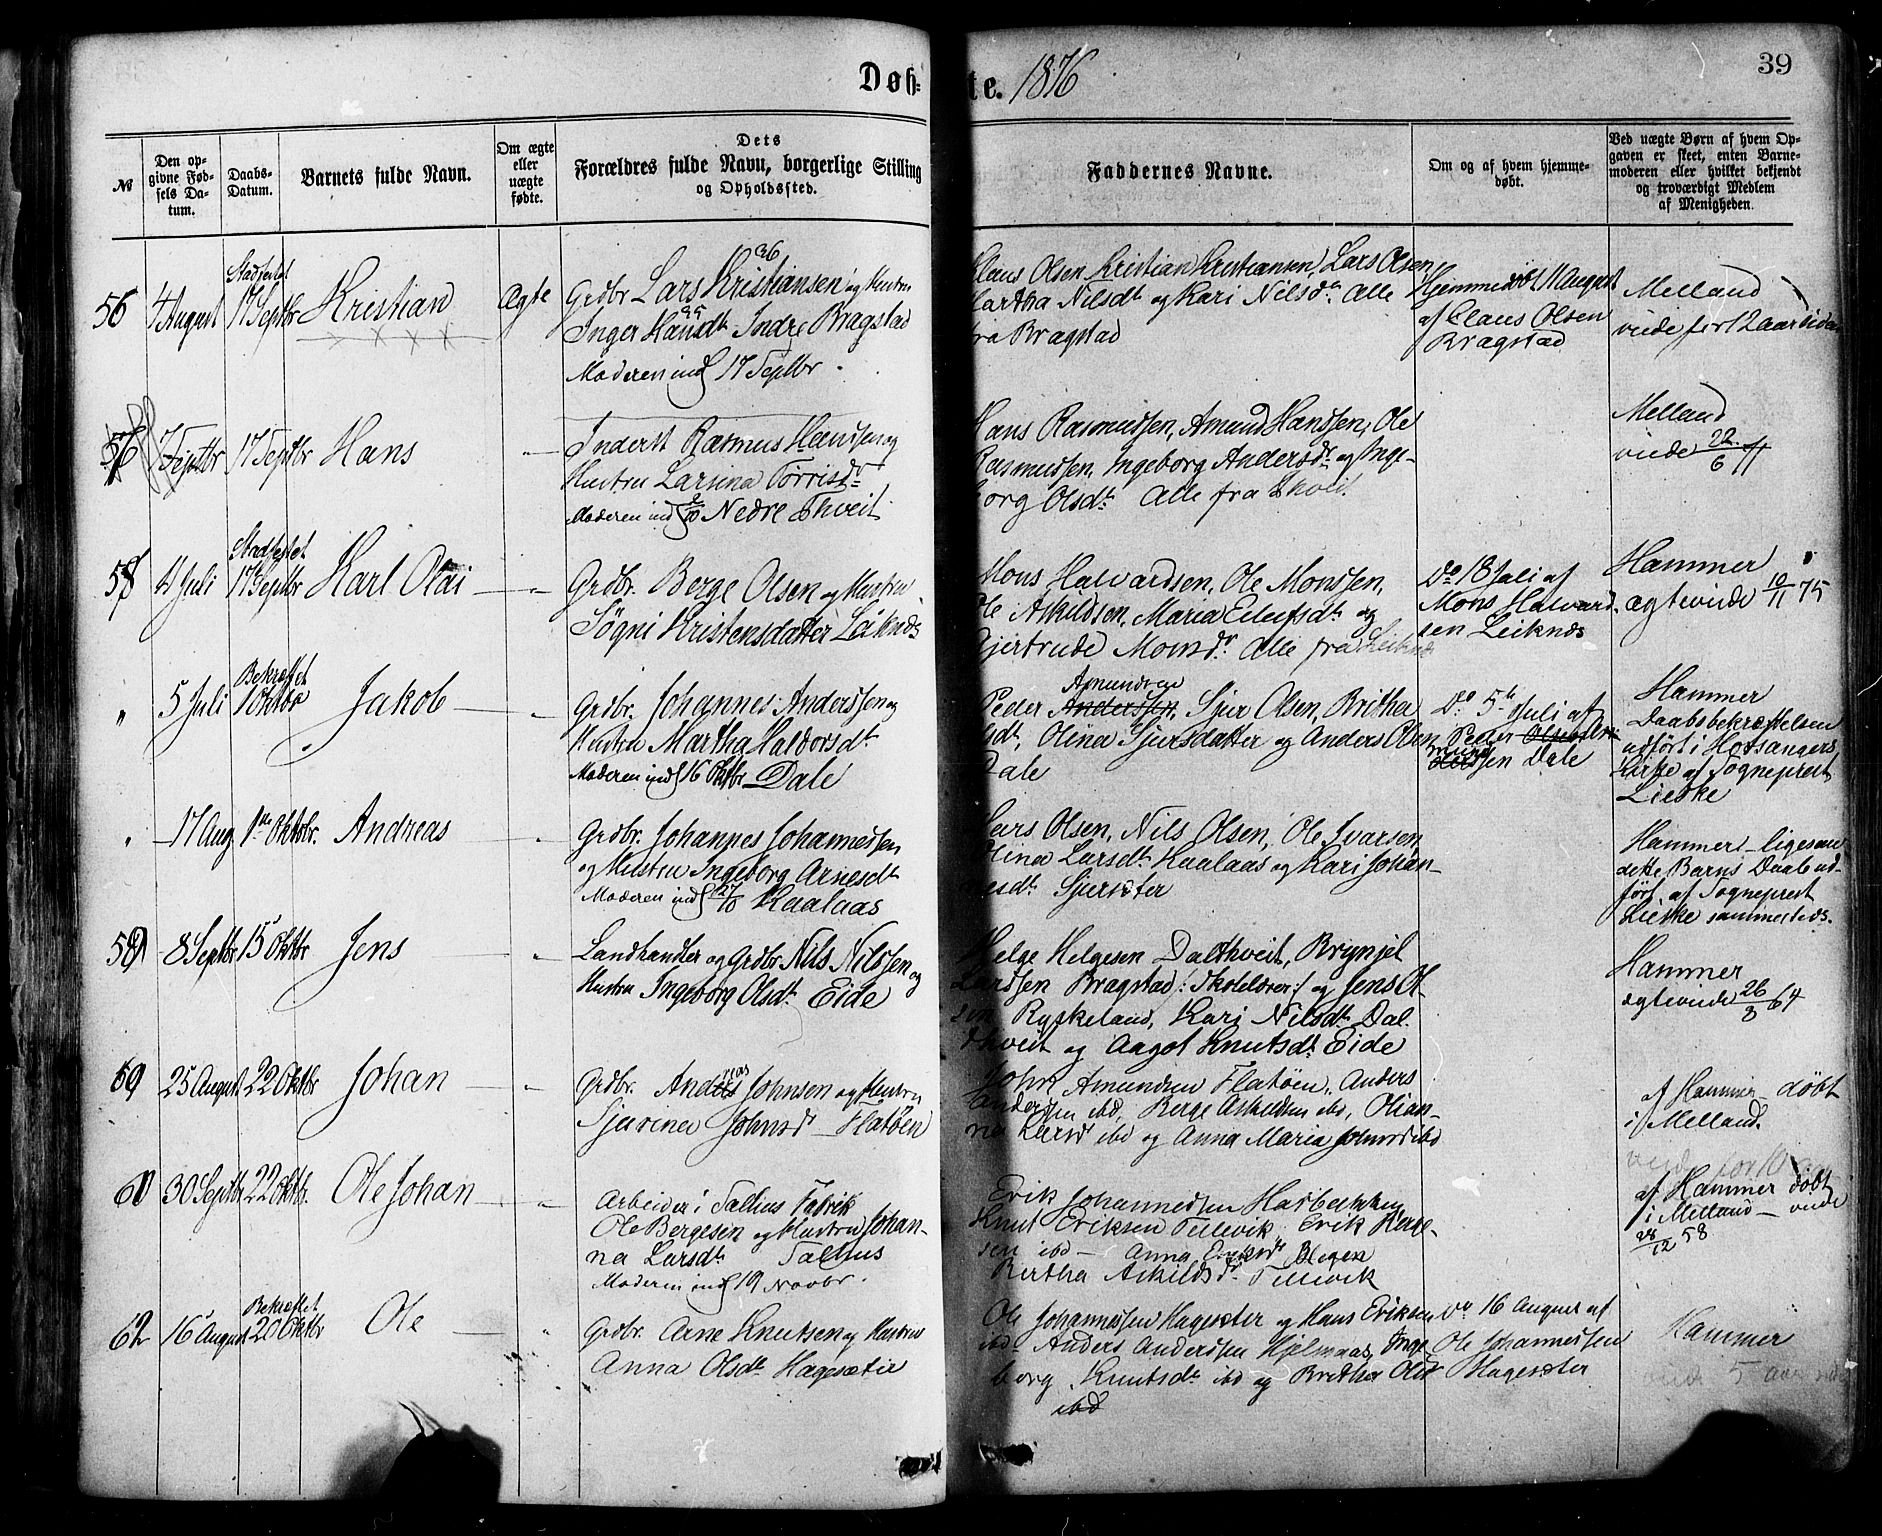 Døb=
te. 1876
39
№
Den op-
givne Fød-
sels Da-
tum.
Daabs-
Datum.
Barnets fulde Navn.
Om ægte
eller
uægte
fødte.
Dets
Forældres fulde Navn, borgerlige Stilling
og Opholdssted.
Faddernes Navne.
Om og af hvem hjemme-
døbt.
Ved uægte Børn af hvem Op-
gaven er skeet, enten Barne-
moderen eller hvilket bekjendt
og troværdigt Medlem
af Menigheden.
56
4 August
Stadfæstet
17 Septbr
Kristian
Ægte
Grdbr Lars Kristiansen 36 og Hustru
Inger Hansdt Indre Bragstad
Moderen ind 17 Septbr.
Claus Olsen Kristian Kristiansen, Lars Olsen
Martha Nilsdt og Kari Nilsdr Alle
fra Bragstad
Hjemmedøbt 11 August
af Claus Olsen
Bragstad
Melland
vide for 12 Aar siden
17 Septbr
Hans
Inderst Rasmus Hansen og
Hustru Larsina Torrisdr
Moderen ind Nedre Thveit
Hans Rasmussen, Amund Hansen, Ole
Rasmussen, Ingeborg Andersdr og Inge-
borg Olsdt Alle fra Thveit.
Melland
vide 22/6
4 Juli
Stadfestet
17 Septbr
Karl Olai
Grdbr. Berge Olsen og Hustru
Søgni Kristensdatter Leiknes
Mons Halvardsen, Ole Monssen,
Ole Askildsen, Maria Eilefsdt og
Gjertrude Monsdr. Alle fra Leiknes
Do 18 Juli af
Mons Halvard-
sen Leiknes
Hammer
ægtevide 10/11 75
"
5 Juli
Bekræftet
1 Oktbr
Jakob
Grdbr. Johannes Anderssen og
Hustru Martha Haldorsdt
Moderen ind 16 Oktbr. Dale
Amundsen
Peder Anderssen, Sjur Olsen, Brithe
Olsdt, Olina Sjursdatter og Anders Olsen
Dale
Do 5te Juli af
Peder Olsen Am-
undssen Dale
Hammer
Daabsbekræftelsen
udført i Hosangers
Kirke af Sogneprest
Lieske
"
17 Aug
1ste Oktobr.
Andreas
Grdbr. Johannes Johannessen
og Hustru Ingeborg Arnesdt
Moderen ind Kaalaas
Lars Olsen, Nils Olsen, Ole Ivarsen
Olina Larsdt. Kaalaas og Kari Johan-
nesdt Sjursæter
Hammer - ligesom
dette Barns Daab ud-
ført af Sogneprest
Lieske sammesteds.
8 Septbr
15 Oktbr
Jens
Landhandler og Grdbr Nils Nilssen og
Hustru Ingeborg Olsdt. Eide
Helge Helgesen Dalthveit, Brynjel
Larssen Bragstad /: Skolelærer :/ og Jens Ol-
sen Ryskeland, Kari Nilsdt Dal-
thveit og Aagot Knutsdt. Eide
Hammer
ægtevide 26/3 64
25 August
22 Oktbr
Johan
Grdbr. Andreas Johnsen og Hustru
Sjurina Johnsdt Flatøen
John Amundsen Flatøen, Anders
Anderssen ibd, Berge Askildsen ibd, Olian-
na Larsdt ibd og Anna Maria Johnsdt ibd
af Hammer - døbt
i Melland.
30 Septbr
22 Oktbr.
Ole Johan
Arbeider i Salhus Fabrik
Ole Bergesen og Hustru Johan-
na Larsdt. Salhus
Moderen ind 19 Novbr.
Erik Johannessen Hasbakken
Knut Eriksen Tellevik, Erik
ibd - Anna
Bertha Askildsdr. Tellevik
af Hammer døbt
i Melland - vide
28/12 58
62
16 August
Bekræftet
20 Oktbr
Ole
Grdbr. Arne Knutsen og Hustru
Anna Olsdt. Hagesæter
Ole Johannessen Hagesæter og Hans Eriksen
ibd. Anders Anderssen Hjelmaas, Inge-
borg Knutsdt ibd og Brithe Olsdt
ibd
Do 16 August af
Ole Johannessen
Hagesæter
Hammer
vide 5 aar